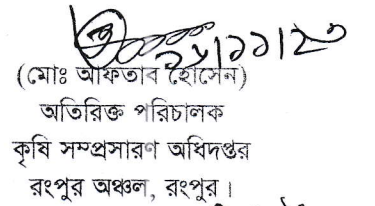 ২৮/১১/২৩
(মোঃ আফতাব হোসেন)
অতিরিক্ত পরিচালক
কৃষি সম্প্রসারণ অধিদপ্তর
রংপুর অঞ্চল, রংপুর।